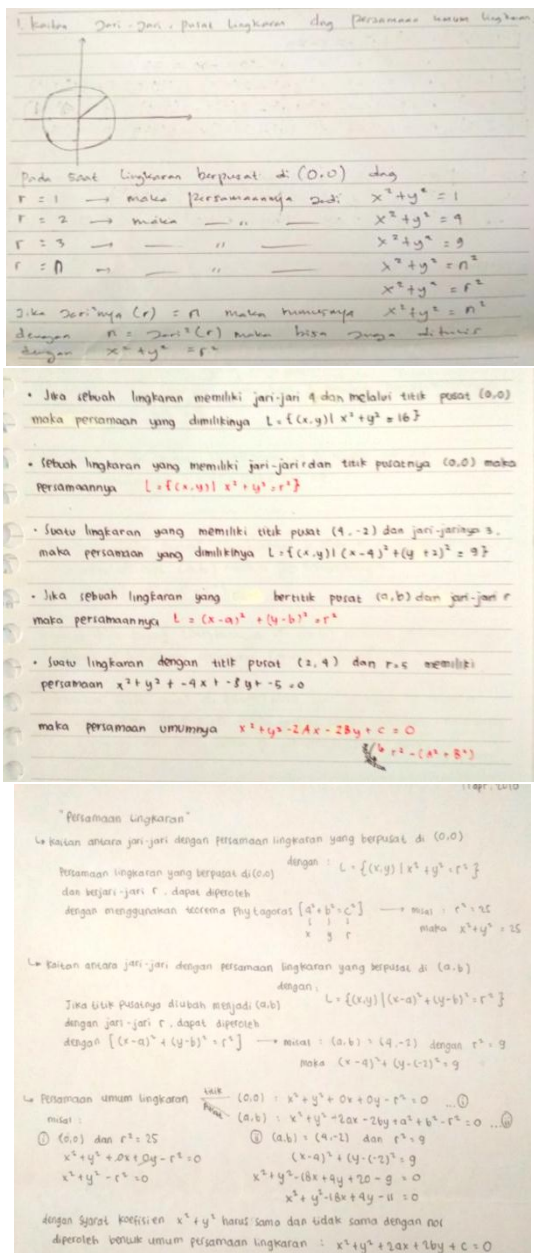 1. Kaitan jari-jari, pusat lingkaran dng persamaan umum lingkaran
Pada saat lingkaran berpusat di (0,0) dng
r = 1 → maka persamaannya jadi x² + y² = 1
r = 2 → maka — " — x² + y² = 4
r = 3 → — " — x² + y² = 9
r = n → — " — x² + y² = n²
x² + y² = r²
Jika jari²nya (r) = n maka rumusnya x² + y² = n²
dengan n = jari² (r) maka bisa juga ditulis
dengan x² + y² = r²
• Jika sebuah lingkaran memiliki jari-jari 4 dan melalui titik pusat (0,0)
maka persamaan yang dimilikinya L = {(x,y)| x² + y² = 16}
• Sebuah lingkaran yang memiliki jari-jari r dan titik pusatnya (0,0) maka
persamaannya L = {(x,y)| x² + y² = r²}
• Suatu lingkaran yang memiliki titik pusat (4,-2) dan jari-jarinya 3,
maka persamaan yang dimilikinya L = {(x,y)| (x-4)² + (y+2)² = 9}
• Jika sebuah lingkaran yang bertitik pusat (a,b) dan jari-jari r
maka persamaannya L = (x-a)² + (y-b)² = r²
• Suatu lingkaran dengan titik pusat (2,4) dan r=5 memiliki
persamaan x² + y² + -4x + -8y + -5 = 0
maka persamaan umumnya x² + y² - 2Ax - 2By + C = 0
r² - (A² + B²)
"Persamaan Lingkaran"
↳ Kaitan antara jari-jari dengan persamaan lingkaran yang berpusat di (0,0)
dengan : L = {(x,y) | x² + y² = r²}
Persamaan lingkaran yang berpusat di (0,0)
dan berjari-jari r, dapat diperoleh
dengan menggunakan teorema Phytagoras [a² + b² = c²] → misal : r² = 25
x y r maka x² + y² = 25
↳ Kaitan antara jari-jari dengan persamaan lingkaran yang berpusat di (a,b)
dengan :
Jika titik pusatnya diubah menjadi (a,b) L = {(x,y) | (x-a)² + (y-b)² = r²}
dengan jari-jari r, dapat diperoleh
dengan [(x-a)² + (y-b)² = r²] → misal : (a,b) = (4,-2) dengan r² = 9
maka (x-4)² + (y-(-2))² = 9
↳ Persamaan umum lingkaran titik pusat (0,0) : x² + y² + 0x + 0y - r² = 0 ... (i)
(a,b) : x² + y² - 2ax - 2by + a² + b² - r² = 0 ... (ii)
misal :
(i) (0,0) dan r² = 25 (ii) (a,b) = (4,-2) dan r² = 9
x² + y² + 0x + 0y - r² = 0 (x-4)² + (y-(-2))² = 9
x² + y² - r² = 0 x² + y² - 18x + 4y + 20 - 9 = 0
x² + y² - 18x + 4y - 11 = 0
dengan syarat koefisien x² + y² harus sama dan tidak sama dengan nol
diperoleh bentuk umum persamaan lingkaran : x² + y² + 2ax + 2by + c = 0